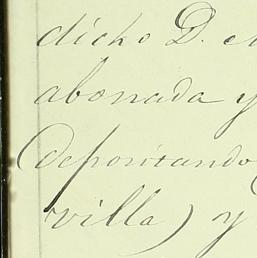 dicho D.
abonada y
(depositando
villa) y